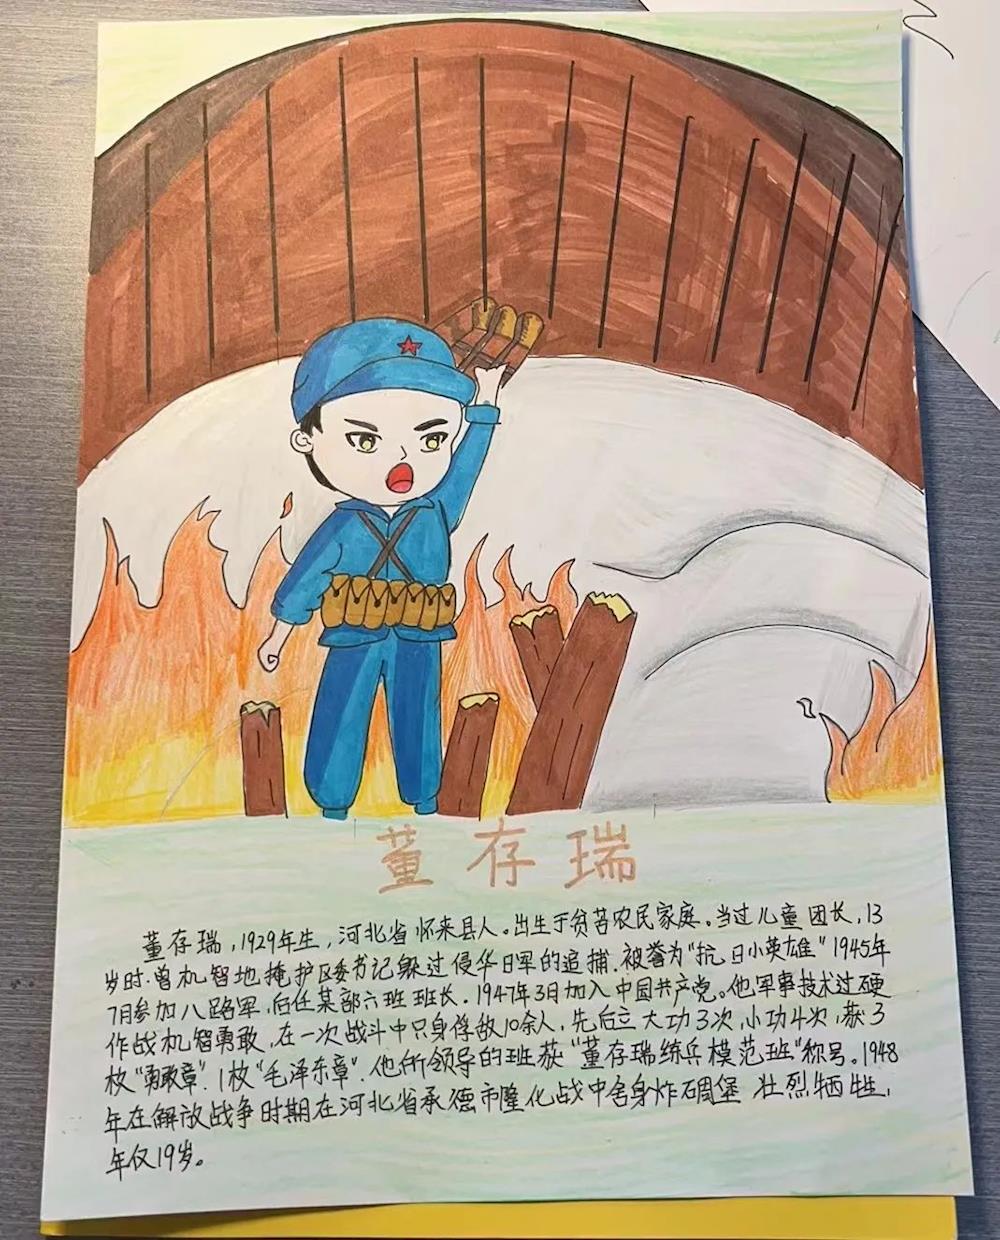 董存瑞
董存瑞，1929年生，河北省怀来县人。出生于贫苦农民家庭。当过儿童团长，13
岁时，曾机智地掩护区委书记躲过侵华日军的追捕，被誉为"抗日小英雄"1945年
7月参加八路军，后任某部六班班长。1947年3月加入中国共产党。他军事技术过硬
作战机智勇敢，在一次战斗中只身俘敌10余人，先后立大功3次，小功4次，获3
枚"勇敢章"，1枚"毛泽东章"，他所领导的班获"董存瑞练兵模范班"称号。1948
年在解放战争时期在河北省承德市隆化战中舍身炸碉堡 壮烈牺牲，
年仅19岁。